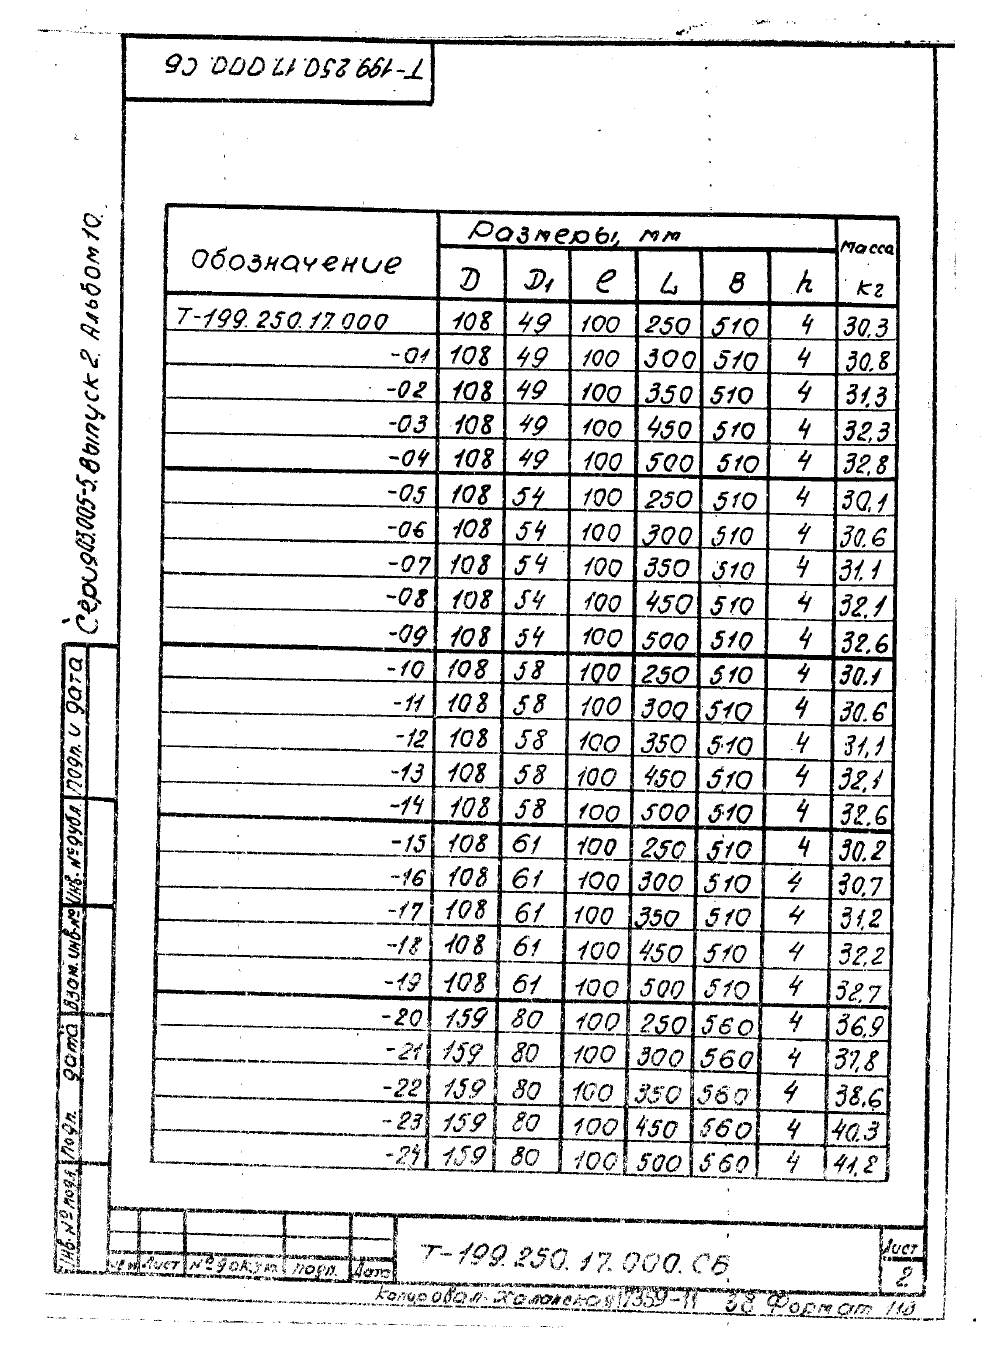 Т-199.250.17.000.СБ
Серия 3.005-5. Выпуск 2. Альбом 10.
Обозначение Размеры, мм Масса кг
D D1 ℓ L B h
Т-199.250.17.000 108 49 100 250 510 4 30.3
-01 108 49 100 300 510 4 30.8
-02 108 49 100 350 510 4 31.3
-03 108 49 100 450 510 4 32.3
-04 108 49 100 500 510 4 32.8
-05 108 54 100 250 510 4 30.1
-06 108 54 100 300 510 4 30.6
-07 108 54 100 350 510 4 31.1
-08 108 54 100 450 510 4 32.1
-09 108 54 100 500 510 4 32.6
-10 108 58 100 250 510 4 30.1
-11 108 58 100 300 510 4 30.6
-12 108 58 100 350 510 4 31.1
-13 108 58 100 450 510 4 32.1
-14 108 58 100 500 510 4 32.6
-15 108 61 100 250 510 4 30.2
-16 108 61 100 300 510 4 30.7
-17 108 61 100 350 510 4 31.2
-18 108 61 100 450 510 4 32.2
-19 108 61 100 500 510 4 32.7
-20 159 80 100 250 560 4 36.9
-21 159 80 100 300 560 4 37.8
-22 159 80 100 350 560 4 38.6
-23 159 80 100 450 560 4 40.3
-24 159 80 100 500 560 4 41.2
Инв. № подл. Подп. дата Взам. инв. № Инв. № дубл. Подп. и дата
Лист № докум. Подп. Дата
Т-199.250.17.000.СБ
Лист
2
Копировал- 17359-11 38 Формат 11в